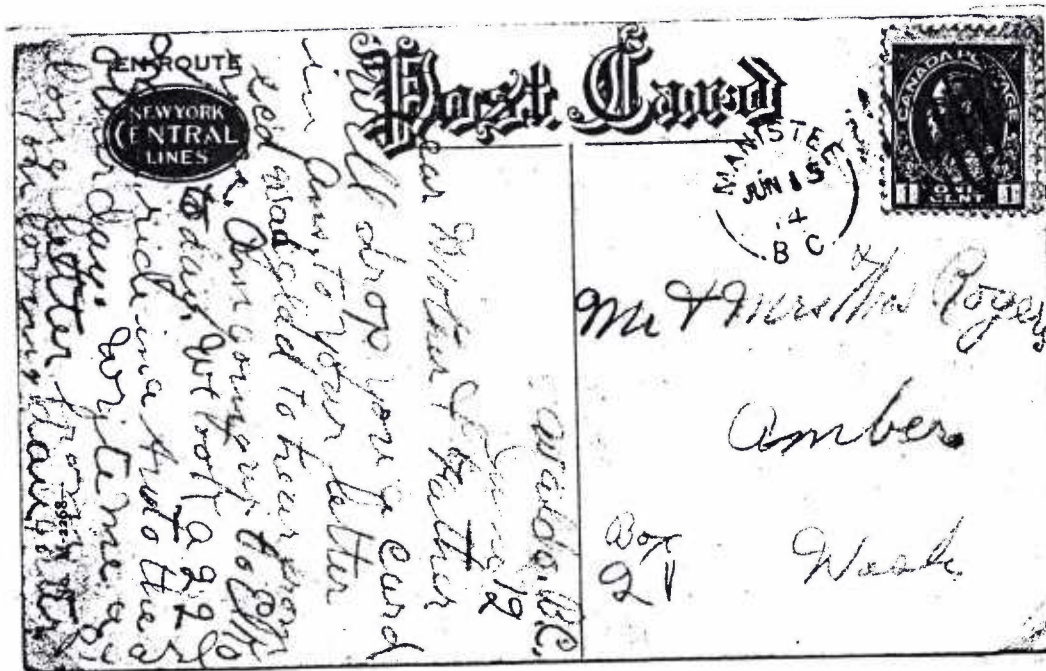 EN-ROUTE
NEW YORK
CENTRAL
LINES
Post Card
CANADA POSTAGE
1 ONE 1
CENT
MANISTEE
JUN 15
14
B C
Mr & Mrs Thos Rogers
Amber
Box Wash
21
Waldo, B.C.
June 12
Dear Mother & Father
Will drop you a card
in Ans, to your letter
recd, was glad to hear from
you. Am going to Elko
today,
ride in a Auto the
day. Write me a
long letter from
your loving
M-2268